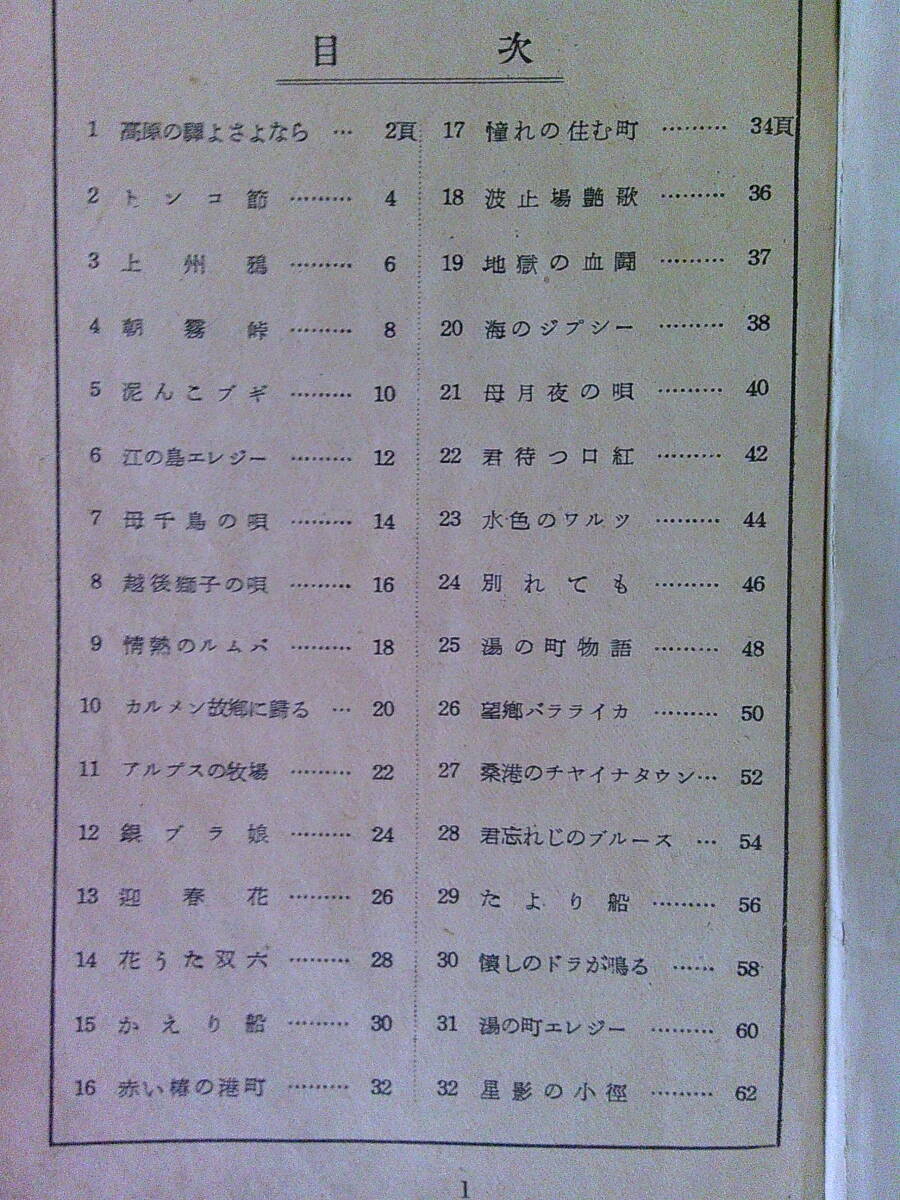 目次
1 高原の驛よさよなら … 2頁
2 トンコ節 ……… 4
3 上州鴉 ……… 6
4 朝霧峠 ……… 8
5 泥んこブギ ……… 10
6 江の島エレジー ……… 12
7 母千鳥の唄 ……… 14
8 越後獅子の唄 ……… 16
9 情熱のルムバ ……… 18
10 カルメン故郷に歸る … 20
11 アルプスの牧場 ……… 22
12 銀ブラ娘 ……… 24
13 迎春花 ……… 26
14 花うた双六 ……… 28
15 かえり船 ……… 30
16 赤い椿の港町 ……… 32
17 憧れの住む町 ……… 34頁
18 波止場艶歌 ……… 36
19 地獄の血闘 ……… 37
20 海のジプシー ……… 38
21 母月夜の唄 ……… 40
22 君待つ口紅 ……… 42
23 水色のワルツ ……… 44
24 別れても ……… 46
25 湯の町物語 ……… 48
26 望郷バラライカ ……… 50
27 桑港のチヤイナタウン… 52
28 君忘れじのブルース … 54
29 たより船 ……… 56
30 懐しのドラが鳴る …… 58
31 湯の町エレジー ……… 60
32 星影の小徑 ……… 62
1